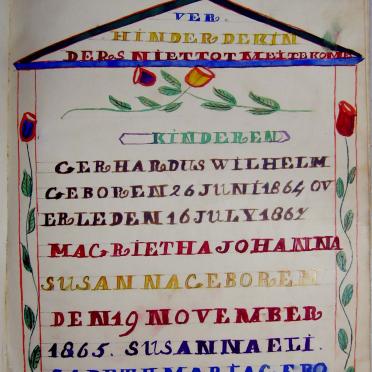 VER
HINDER DE KIN
DERS NIET TOT MEI TE KOME
KINDEREN
GERHARDUS WILHELM
GEBOREN 26 JUNI 1864 OV
ERLEDEN 16 JULY 1864
MAGRIETHA JOHANNA
SUSANNA GEBOREN
DEN 19 NOVEMBER
1865. SUSANNA ELI.
SABETH MARIA GEBO